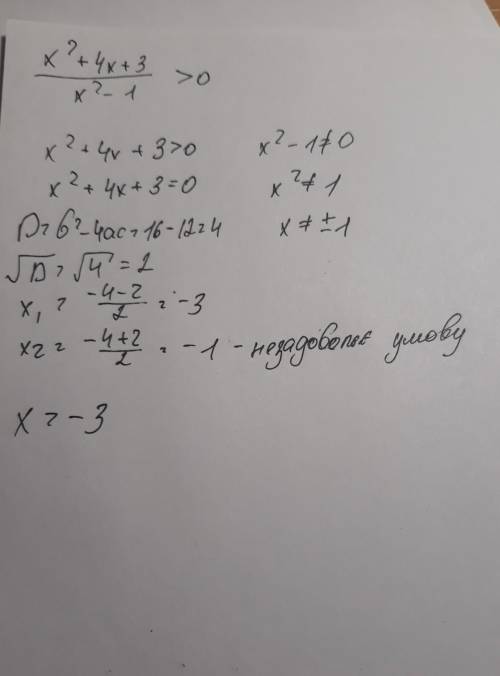 x² + 4x + 3 / x² - 1 > 0
x² + 4x + 3 > 0 x² - 1 ≠ 0
x² + 4x + 3 = 0 x² ≠ 1
D = b² - 4ac = 16 - 12 = 4 x ≠ ± 1
√D = √4 = 2
x₁ = -4 - 2 / 2 = -3
x₂ = -4 + 2 / 2 = -1 - незадовольняє умову
x = -3